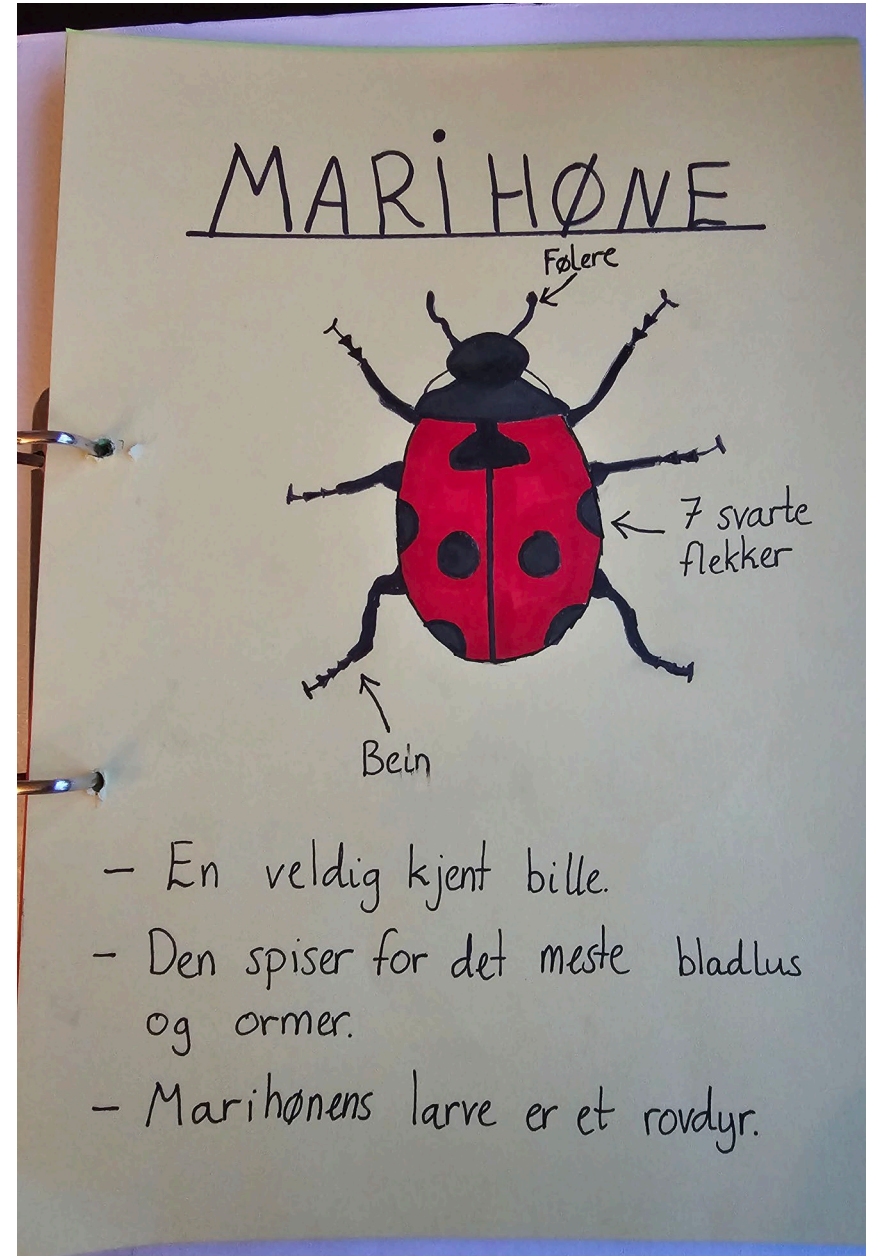 MARIHØNE
Følere
7 svarte
flekker
Bein
- En veldig kjent bille.
- Den spiser for det meste bladlus
og ormer.
- Marihønens larve er et rovdyr.